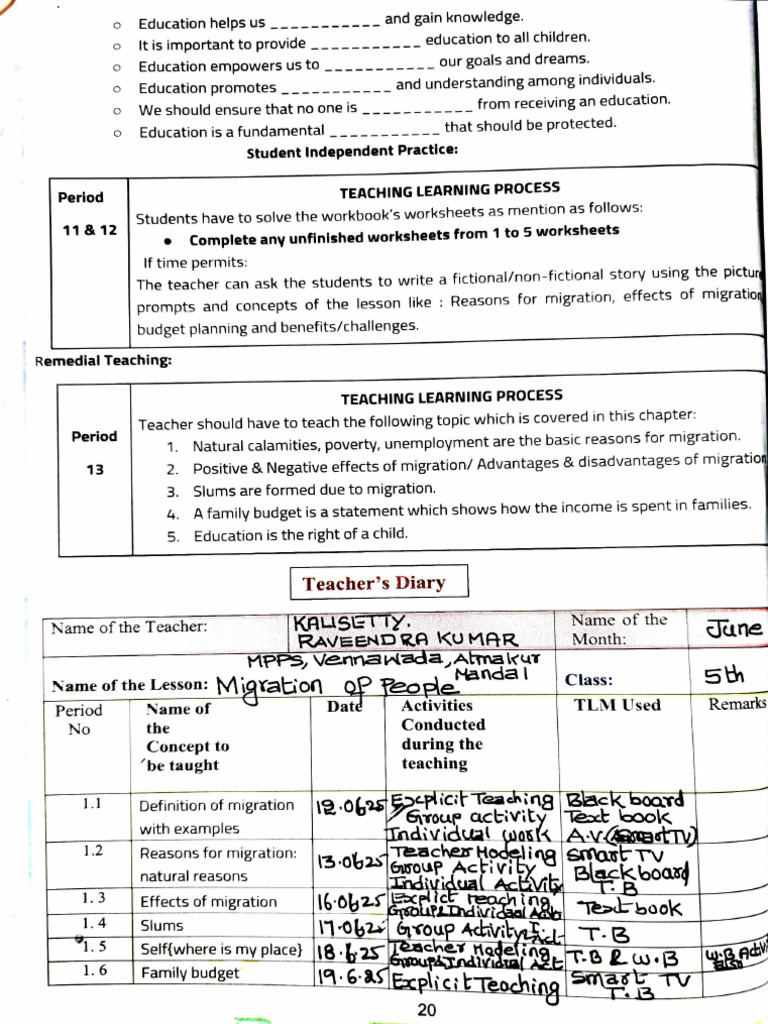 o Education helps us ___________ and gain knowledge.
o It is important to provide ___________ education to all children.
o Education empowers us to ___________ our goals and dreams.
o Education promotes ___________ and understanding among individuals.
o We should ensure that no one is ___________ from receiving an education.
o Education is a fundamental ___________ that should be protected.
Student Independent Practice:
Period
11 & 12
TEACHING LEARNING PROCESS
Students have to solve the workbook's worksheets as mention as follows:
• Complete any unfinished worksheets from 1 to 5 worksheets
If time permits:
The teacher can ask the students to write a fictional/non-fictional story using the picture
prompts and concepts of the lesson like : Reasons for migration, effects of migration
budget planning and benefits/challenges.
Remedial Teaching:
Period
13
TEACHING LEARNING PROCESS
Teacher should have to teach the following topic which is covered in this chapter:
1. Natural calamities, poverty, unemployment are the basic reasons for migration.
2. Positive & Negative effects of migration/ Advantages & disadvantages of migration
3. Slums are formed due to migration.
4. A family budget is a statement which shows how the income is spent in families.
5. Education is the right of a child.
Teacher's Diary
Name of the Teacher: KALISETTY.
RAVEENDRA KUMAR
MPPS, Vennawada, Atmakur
Mandal
Name of the
Month: June
Name of the Lesson: Migration of People
Class: 5th
Period
No
Name of
the
Concept to
be taught
Date
Activities
Conducted
during the
teaching
TLM Used
Remarks
1.1
Definition of migration
with examples
12.0625
Explicit Teaching
Group activity
Individual work
Black board
Text book
A.V.(Smart TV)
1.2
Reasons for migration:
natural reasons
13.0625
Teacher Modeling
Group Activity
Individual Activity
Smart TV
Black board
T.B
1.3
Effects of migration
16.0625
Explict teaching
Group&Individual
Text book
1.4
Slums
17.062
Group Activity
T.B
1.5
Self{where is my place}
18.6.25
Teacher Modeling
Group&Individual Act
T.B & W.B
W.B Activi
1.6
Family budget
19.6.25
Explicit Teaching
Smart TV
T.B
20